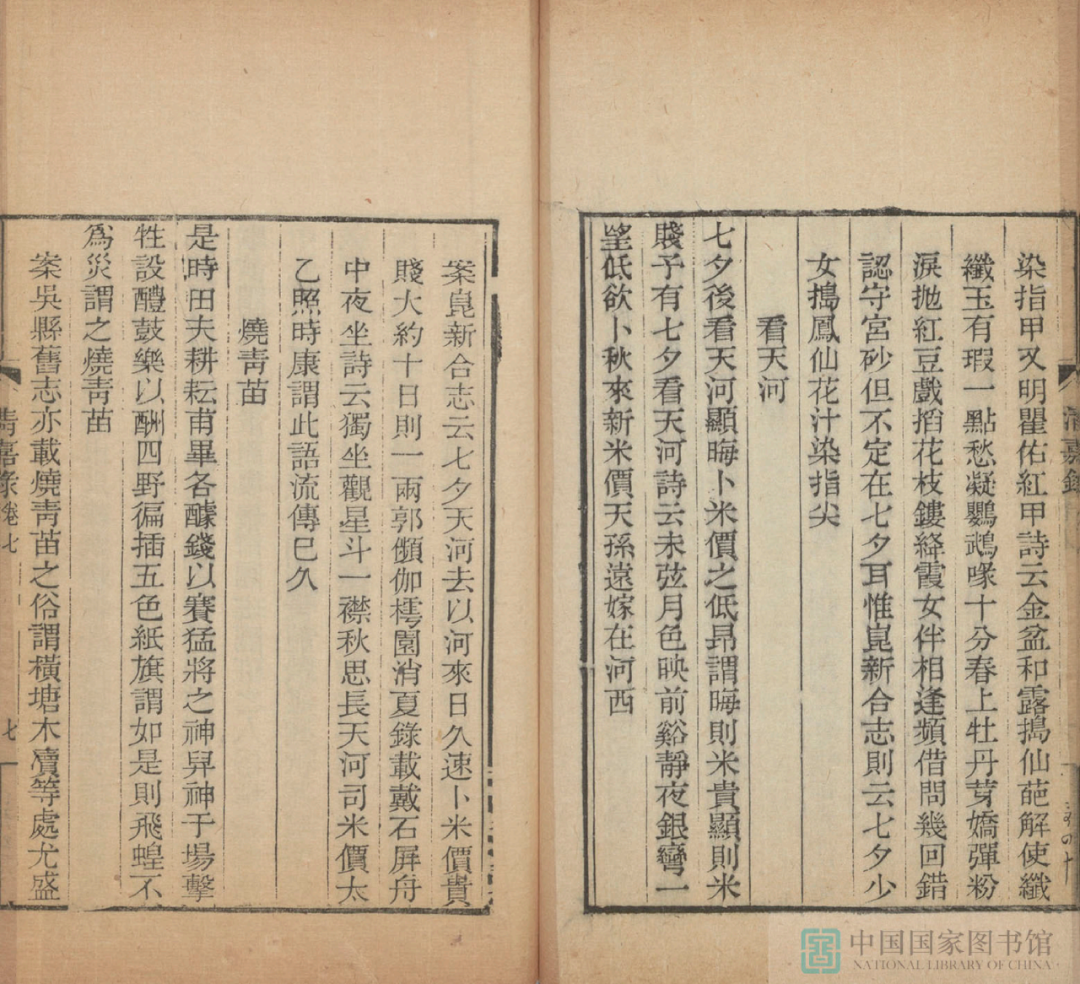 染指甲又明瞿佑紅甲詩云金盆和露搗仙葩解使纖
纖玉有瑕一點愁凝鸚鵡喙十分春上牡丹芽嬌彈粉
淚拋紅豆戲搯花枝鏤絳霞女伴相逢頻借問幾回錯
認守宮砂但不定在七夕耳惟崑新合志則云七夕少
女搗鳳仙花汁染指尖
看天河
七夕後看天河顯晦卜米價之低昂謂晦則米貴顯則米
賤予有七夕看天河詩云未弦月色映前谿靜夜銀灣一
望低欲卜秋來新米價天孫遠嫁在河西
案崑新合志云七夕天河去以河來日久速卜米價貴
賤大約十日則一兩郭頻伽樗園消夏錄載戴石屏舟
中夜坐詩云獨坐觀星斗一襟秋思長天河司米價太
乙照時康謂此語流傳巳久
燒靑苗
是時田夫耕耘甫畢各醵錢以賽猛將之神舁神于場擊
牲設醴鼓樂以酬四野徧插五色紙旗謂如是則飛蝗不
爲災謂之燒靑苗
案吳縣舊志亦載燒靑苗之俗謂橫塘木瀆等處尤盛
淸嘉錄 卷七 七
中国国家图书馆
NATIONAL LIBRARY OF CHINA